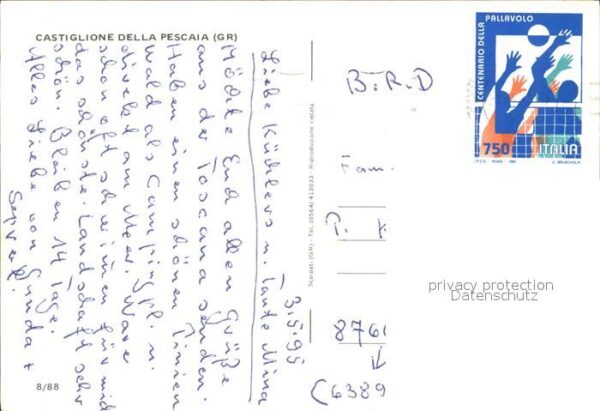 CASTIGLIONE DELLA PESCAIA (GR)
3.5.95
Liebe Küchlers u. Tante Mina
Möchte Euch allen Grüße
aus der Toscana senden.
Haben einen schönen Pinien
Wald als Campingpl. u.
direkt am Meer. Ware
schon oft
das schönste. Landschaft sehr
schön. Bleiben 14 Tage.
Alles Liebe von Gunda +
Sepp
8/88
Scarlati (GR) - Tel. (0564) 413033 - Riproduzione vietata
CENTENARIO DELLA
PALLAVOLO
750 ITALIA
B.R.D
Fam.
P. K
8766
(6389
privacy protection
Datenschutz